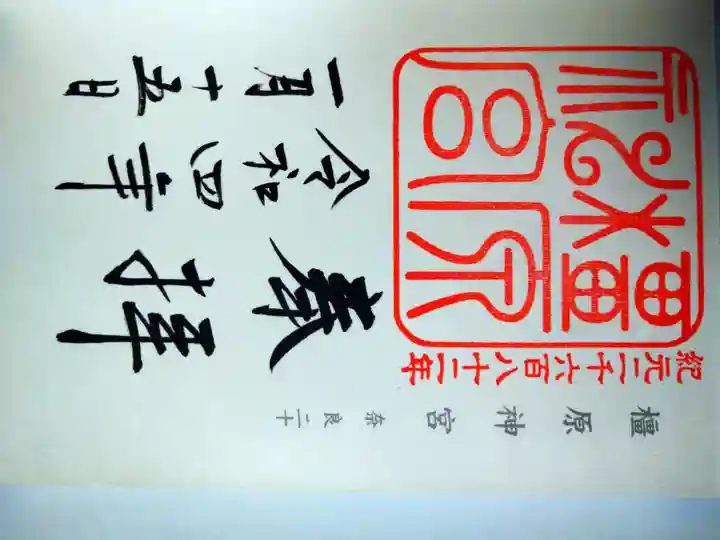 橿原神宮 奈良二十
紀元二千六百八十二年
橿原
神宮
奉拝
令和四年
一月十五日